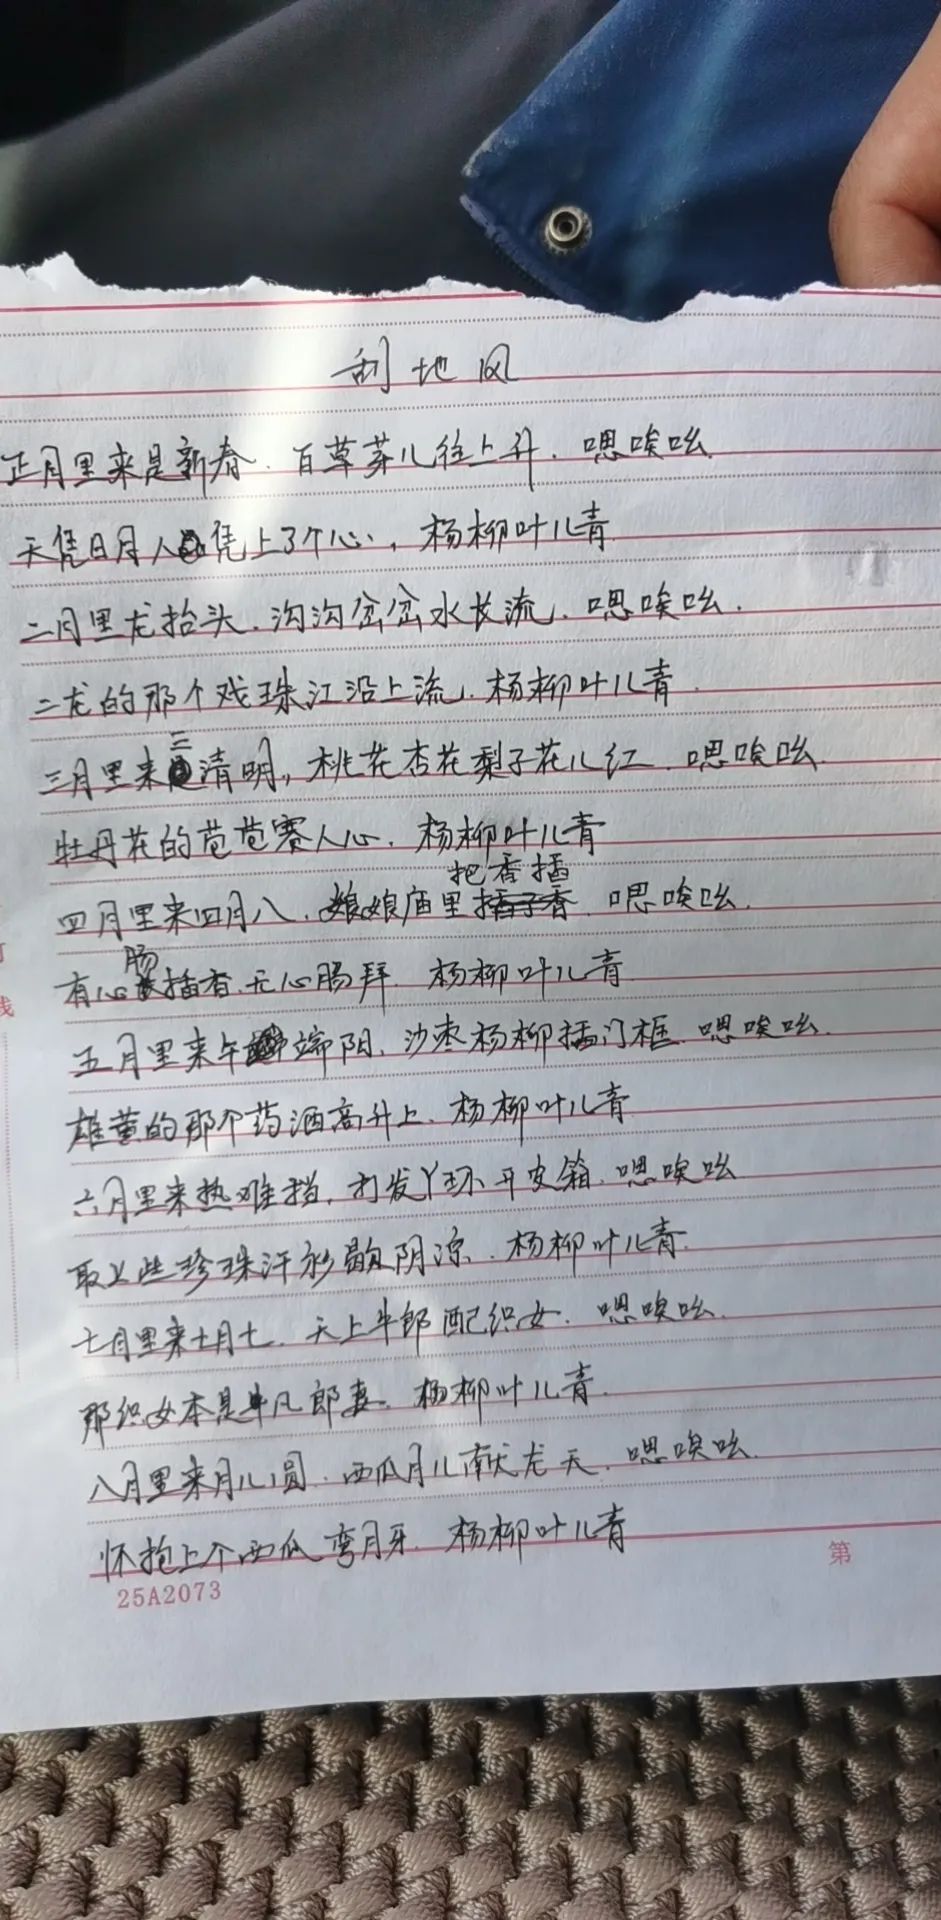 刮地风
正月里来是新春.百草芽儿往上升.嗯唉吆.
天凭日月人凭上了个心,杨柳叶儿青
二月里龙抬头.沟沟岔岔水长流.嗯唉吆.
二龙的那个戏珠江沿上流.杨柳叶儿青.
三月里来三清明,桃花杏花梨子花儿红.嗯唉吆.
牡丹花的苞苞赛人心.杨柳叶儿青
四月里来四月八.娘娘庙里把香插.嗯唉吆.
有心肠插香.无心肠拜.杨柳叶儿青
五月里来午端阳.沙枣杨柳插门框.嗯唉吆.
雄黄的那个药酒高升上.杨柳叶儿青
六月里来热难挡.打发丫环开皮箱.嗯唉吆
取上些珍珠汗衫歇阴凉.杨柳叶儿青.
七月里来七月七.天上牛郎配织女.嗯唉吆.
那织女本是牛凡郎妻.杨柳叶儿青.
八月里来月儿圆.西瓜月儿献龙天.嗯唉吆.
怀抱上个西瓜弯月牙.杨柳叶儿青
25A2073
第